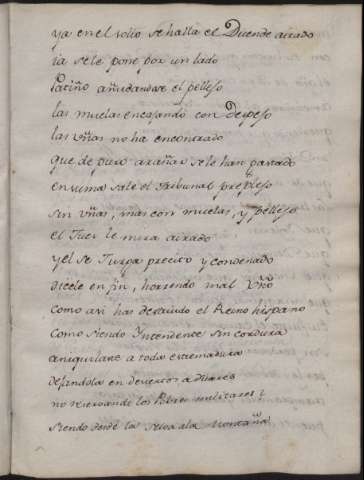 ya en el solio se halla el Duende airado
ia se le pone por un lado
Patiño añudandose el pellejo
las muelas encajando con Despejo
las vñas no ha encontrado
que de puro arañar se le han gastado
en suma sale al Tribunal perplejo
sin vñas, mas con muelas, y pellejo
el Juez le mira airado
y el se Juzga precito y condenado
dicele en fin, horrendo mal
como asi has destruido el Reino hispano
como siendo Yntendente sin cordura
aniquilaste a toda estremadura
dejandola en desiertos
no reservando los Pobres militares
siendo desde la selva a la montaña